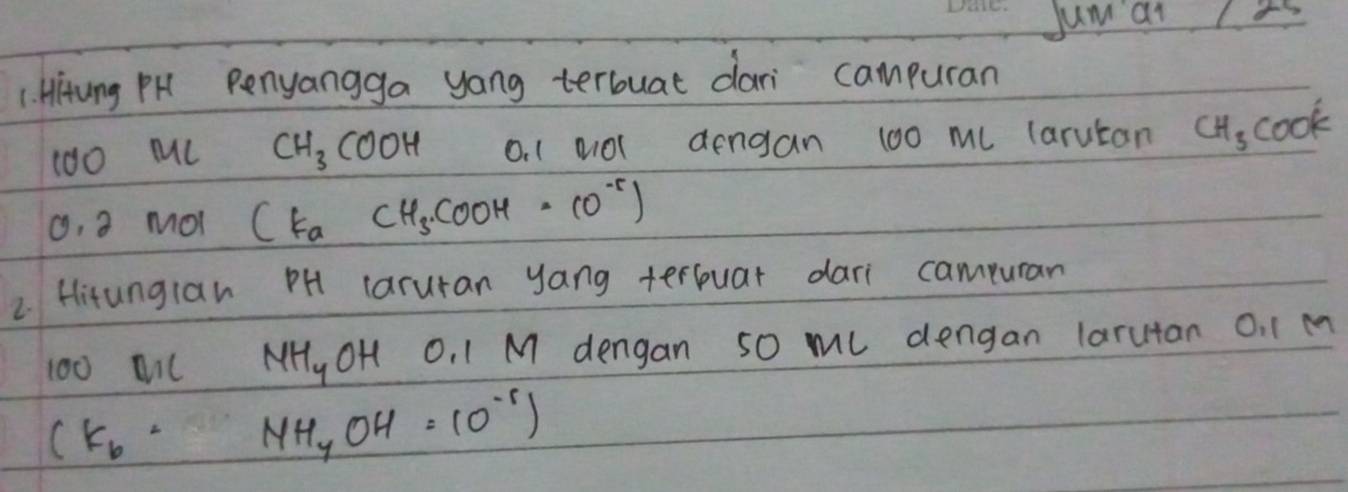 Date: Jum'at / 25
1. Hitung PH Penyangga yang terbuat dari campuran
100 ML CH₃COOH 0.1 mol dengan 100 ML larutan CH₃COOK
0.2 mol (Ka CH₃COOH = 10⁻⁵)
2. Hitunglah PH larutan yang terbuat dari campuran
100 ML NH₄OH 0.1 M dengan 50 ML dengan larutan 0.1 M
(Kb = NH₄OH = 10⁻⁵)